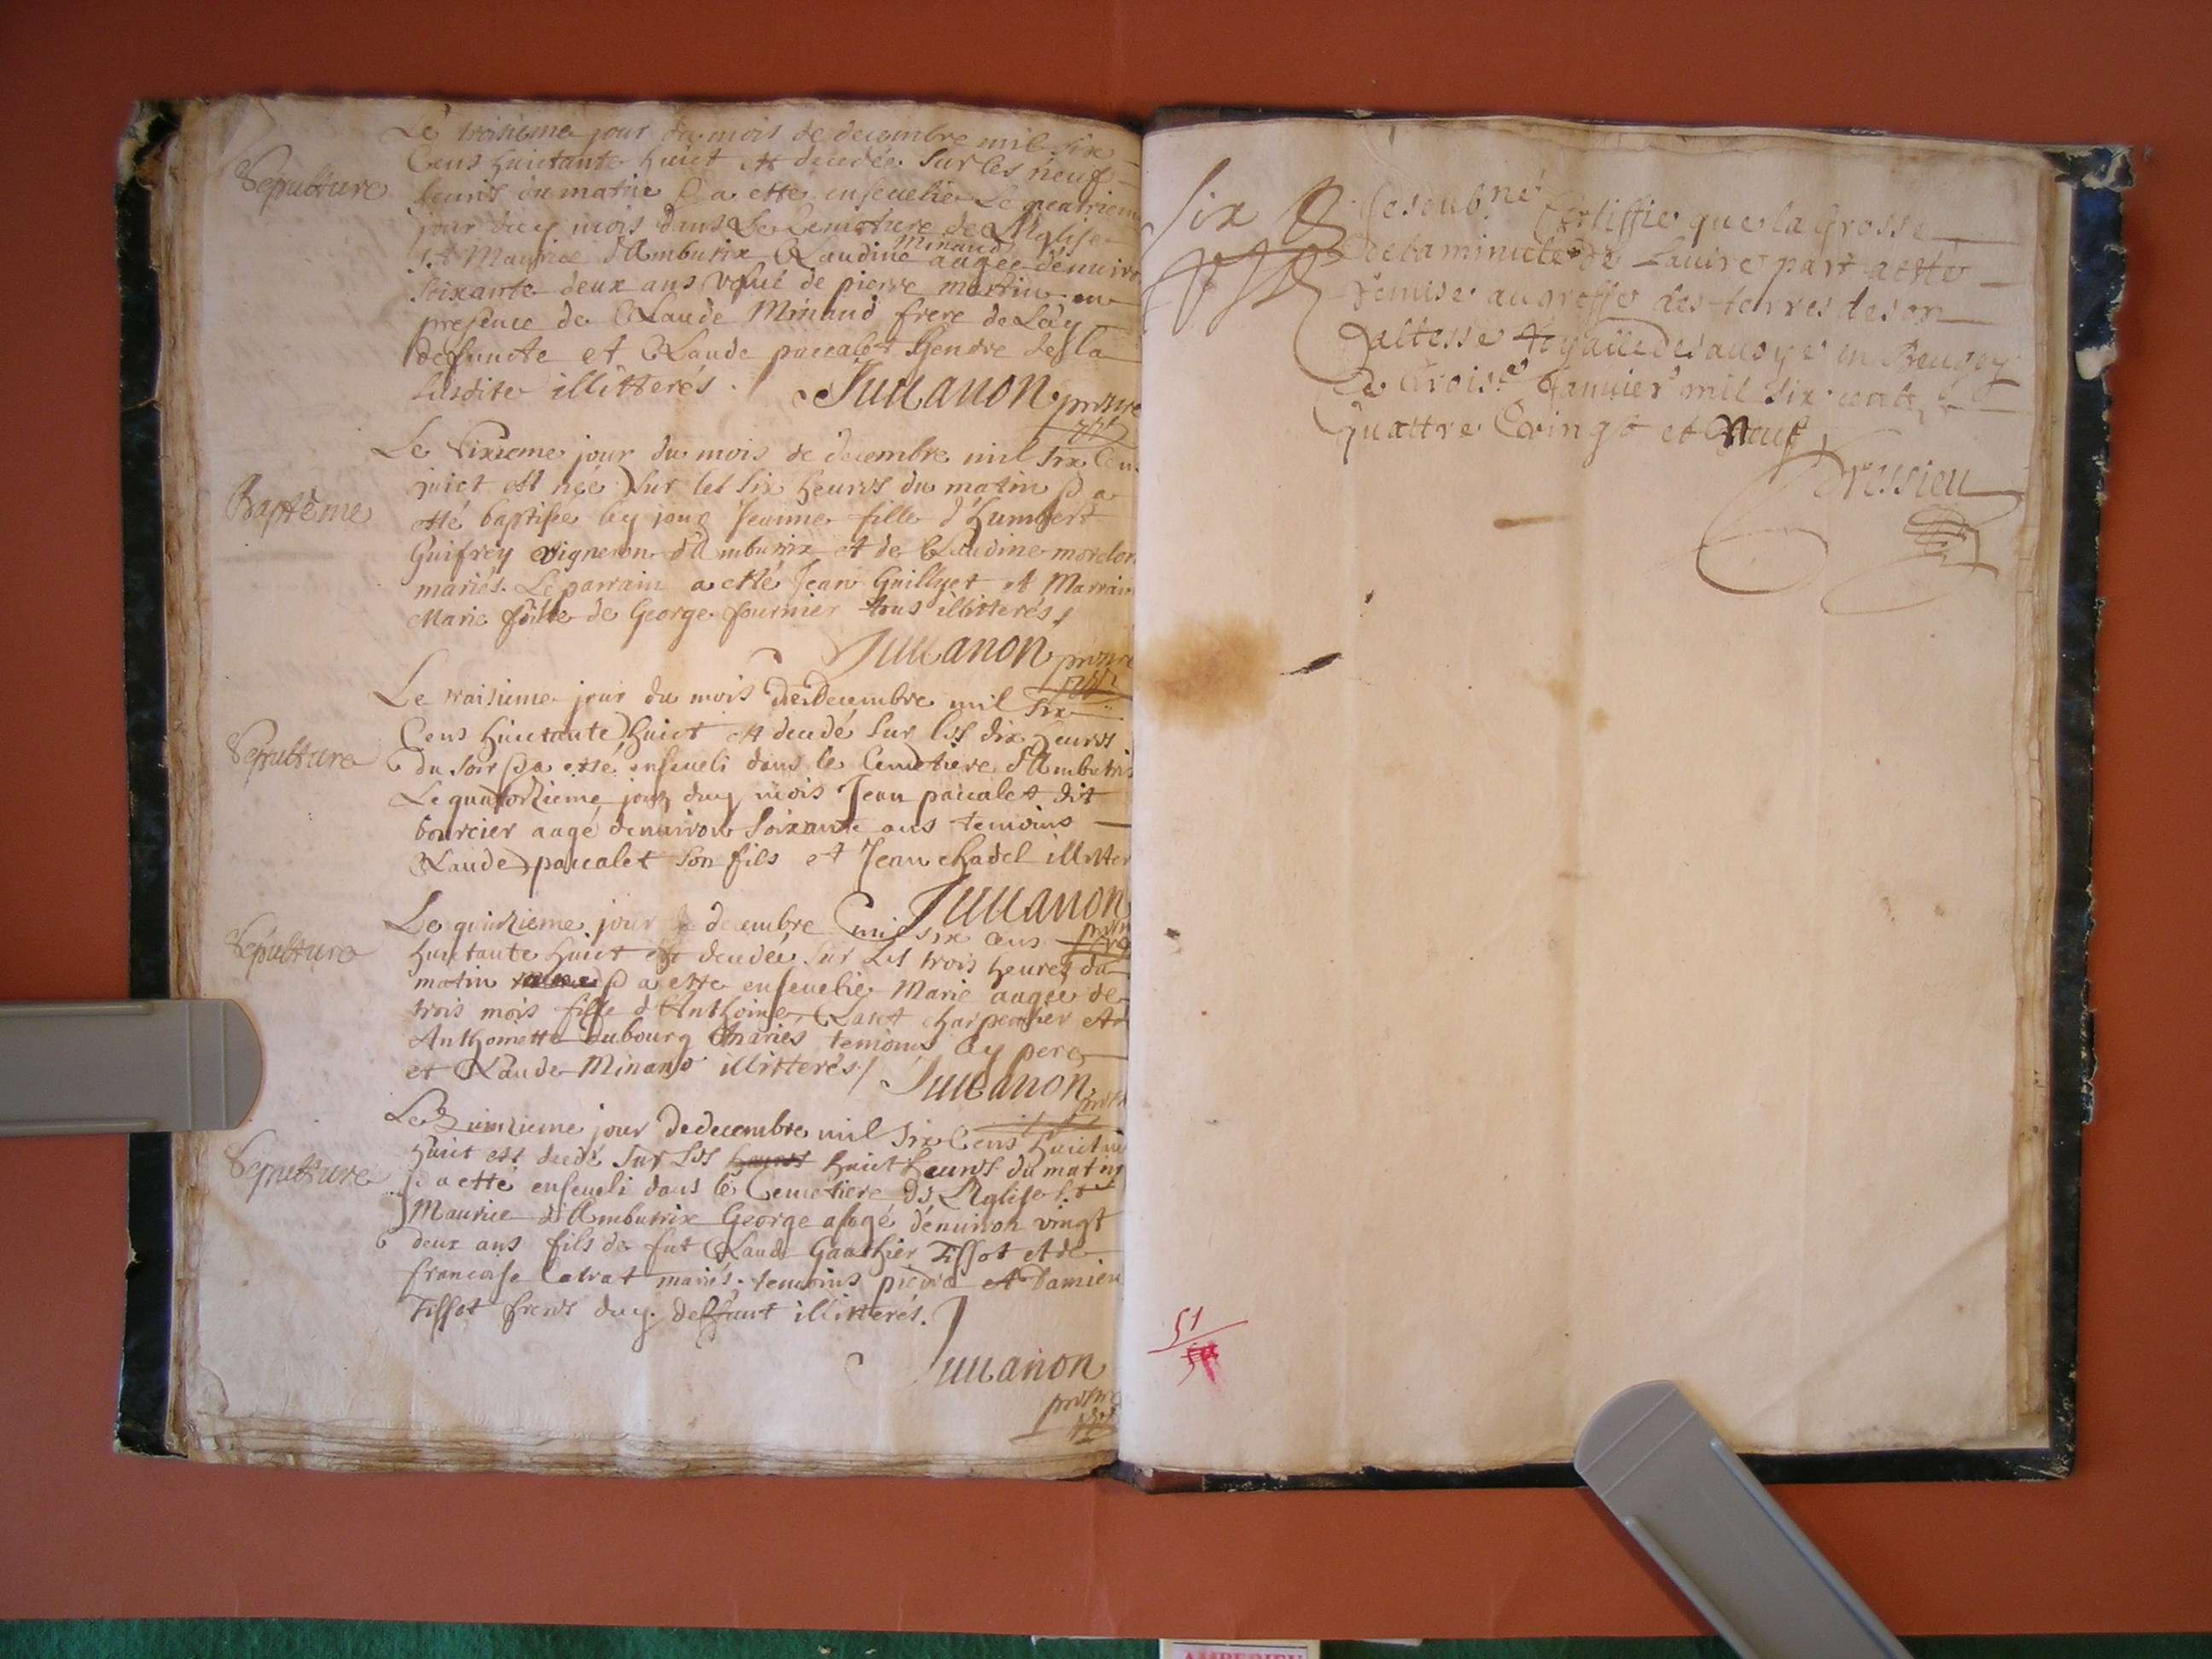 Le troisieme jour du mois de decembre mil six
Cens huictante huict est decedée sur les neuf
Sepulture
heures du matin & a esté ensevelie Le quatriem
jour ducy mois dans Le Cemetiere de L'Eglise
Minaud
St Maurice d'Ambutrix Claudine aagée d'enviro
soixante deux ans vefve de pierre martin en
presence de Claude Minaud frere de Lacy
defuncte et Claude pascalet Gendre de la
susdite illitterés. Juvanon prestre
Le sixieme jour du mois de decembre mil six Cen
huict est née sur les six heures du matin & a
Baptême
esté baptisée cy jour Jeanne fille d'Humbert
Guifrey vigneron d'Ambutrix et de Claudine
mariés. Le parrain a esté Jean Guillyet et Marrain
Marie fille de George fournier tous illitterés
Juvanon prestre
Le traisieme jour du mois de Decembre mil six
Cens huictante huict est decedé sur les dix heures
Sepulture
du soir & a esté enseveli dans le Cemetiere d'Ambutrix
Le quatorzieme jour ducy mois Jean pascalet dit
bourcier aagé d'environ soixante ans temoins
Claude pascalet son fils et Jean chadel illitter
Juvanon
Le quinzieme jour de decembre mil six cens
prestre
Sepulture
huictante huict est decedée sur les trois heures du
matin & a esté ensevelie Marie aagée de
trois mois fille d'Anthoine charpentier et
Anthoinette Dubourg mariés temoins Cy pere
et Claude Minaud illitterés / Juvanon
prestre
Le quinzieme jour de decembre mil six Cens huictan
huict est decedé sur les heures huict heures du matin
Sepulture
& a esté enseveli dans le Cemetiere de L'Eglise St
Maurice d'Ambutrix George aagé d'environ vingt
deux ans fils de fut Claude Gauthier Tissot et de
francoise mariés. temoins pierre et Damien
Tissot freres ducy deffunt illitterés.
Juvanon
prestre
Six
Je soubné Certiffie que la Grosse
De la minute de L'autre part a esté
remise au greffe des terres de son
altesse Royalle en Beugey
Ce troise Janvier mil six cents
quattre vingt et Neuf
Dressieu
51